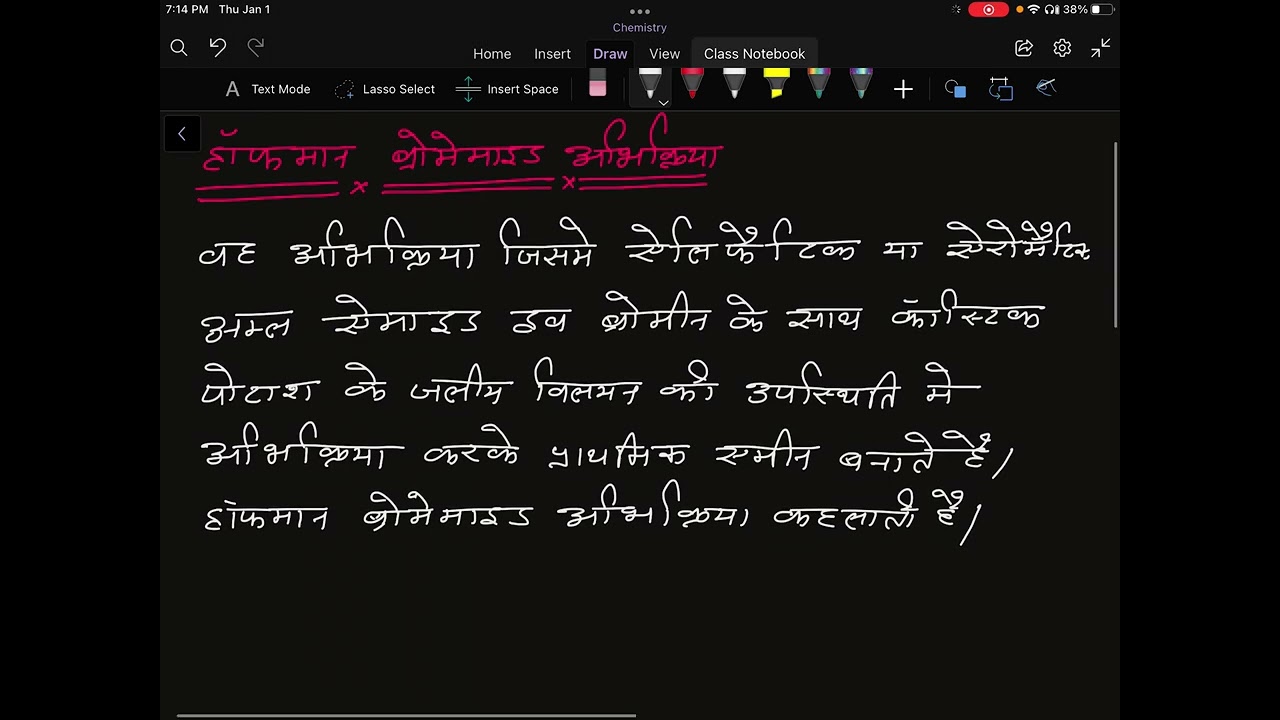 7:14 PM Thu Jan 1 38%
Chemistry
Home Insert Draw View Class Notebook
Text Mode Lasso Select Insert Space
हॉफमान ब्रोमेमाइड अभिक्रिया
वह अभिक्रिया जिसमे ऐलिफैटिक या ऐरोमैटिक
अम्ल ऐमाइड द्रव ब्रोमीन के साथ कॉस्टिक
पोटाश के जलीय विलयन की उपस्थिति मे
अभिक्रिया करके प्राथमिक एमीन बनाते है।
हॉफमान ब्रोमेमाइड अभिक्रिया कहलाती है।